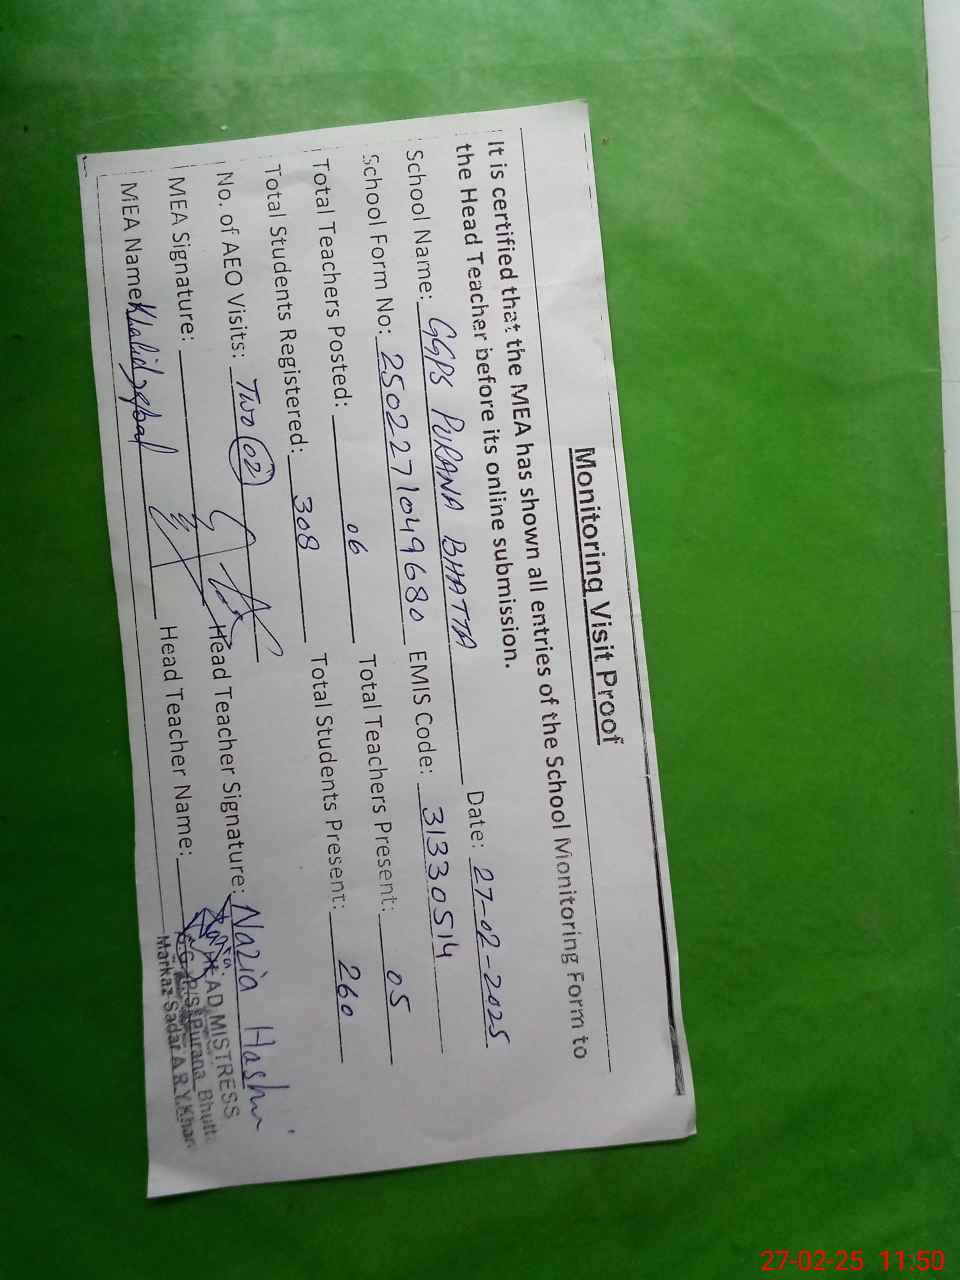 Monitoring Visit Proof
It is certified that the MEA has shown all entries of the School Monitoring Form to
the Head Teacher before its online submission.
School Name: GGPS PURANA BHATTA Date: 27-02-2025
School Form No: 25022271049680 EMIS Code: 31330514
Total Teachers Posted: 06 Total Teachers Present: 05
Total Students Registered: 308 Total Students Present: 260
No. of AEO Visits: Two (02)
MEA Signature: Head Teacher Signature: Nazia Hashi
MEA Name: Khalid Iqbal Head Teacher Name:
HEAD MISTRESS
G.G.P/S Purana Bhutta
Markaz Sadar A R.Y.Khan
27-02-25 11:50